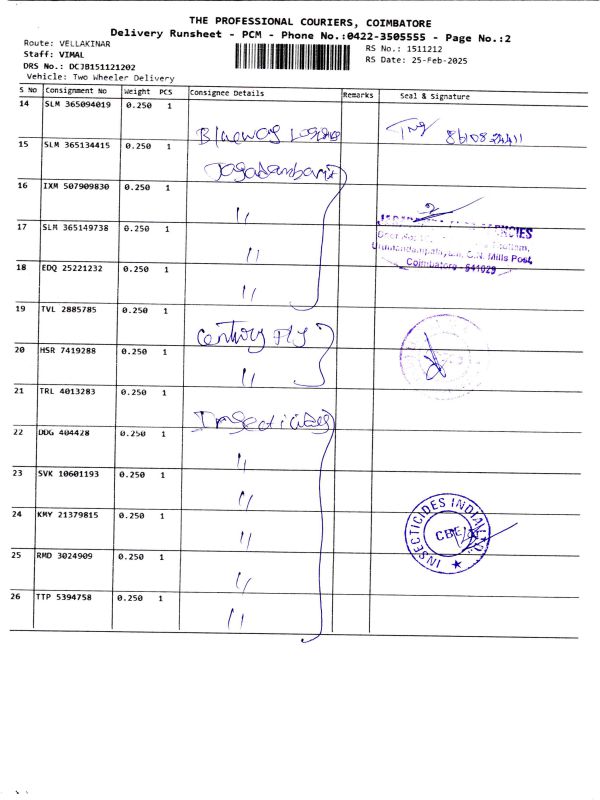 THE PROFESSIONAL COURIERS, COIMBATORE
Delivery Runsheet - PCM - Phone No.:0422-3505555 - Page No.:2
Route: VELLAKINAR
RS No.: 1511212
Staff: VIMAL
RS Date: 25-Feb-2025
DRS No.: DCJB151121202
Vehicle: Two Wheeler Delivery
S No Consignment No Weight PCS Consignee Details Remarks Seal & Signature
14 SLM 365094019 0.250 1
8610824411
15 SLM 365134415 0.250 1
16 IXM 507909830 0.250 1 "
17 SLM 365149738 0.250 1 "
C.N. Mills Post,
Coimbatore - 641029
18 EDQ 25221232 0.250 1 "
19 TVL 2885785 0.250 1 Century Fly
20 HSR 7419288 0.250 1 "
21 TRL 4013283 0.250 1 Insecticides
22 DDG 404428 0.250 1 "
23 SVK 10601193 0.250 1 "
24 KMY 21379815 0.250 1 "
INSECTICIDES INDIA
CBE
25 RMD 3024909 0.250 1 "
26 TTP 5394758 0.250 1 "